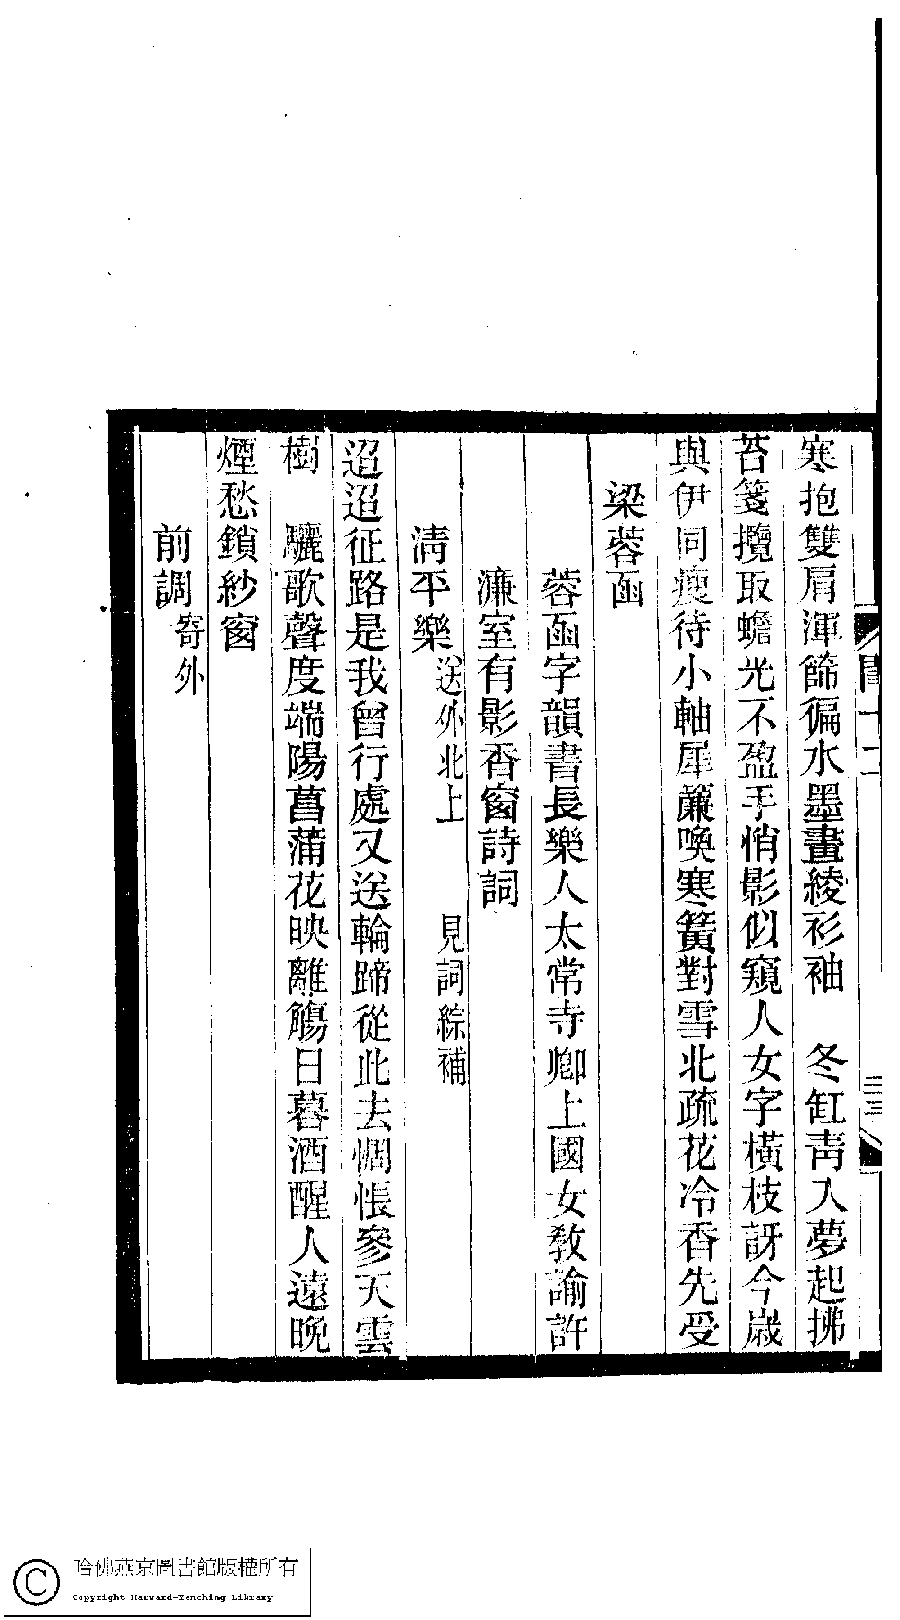 寒抱雙肩渾篩徧水墨畫綾衫袖　冬缸靑入夢起拂
苔箋攬取蟾光不盈手悄影似窺人女字橫枝訝今歲
與伊同瘦待小軸犀簾喚寒簧對雪北疏花冷香先受
梁蓉函
蓉函字韻書長樂人太常寺卿上國女敎諭許
濂室有影香窗詩詞
淸平樂送外北上　見詞綜補
迢迢征路是我曾行處又送輪蹄從此去惆悵參天雲
樹　驪歌聲度端陽菖蒲花映離觴日暮酒醒人遠晚
煙愁鎖紗窗
前調寄外
閨十二
三三
哈佛燕京圖書館版權所有
Copyright Harvard-Yenching Library